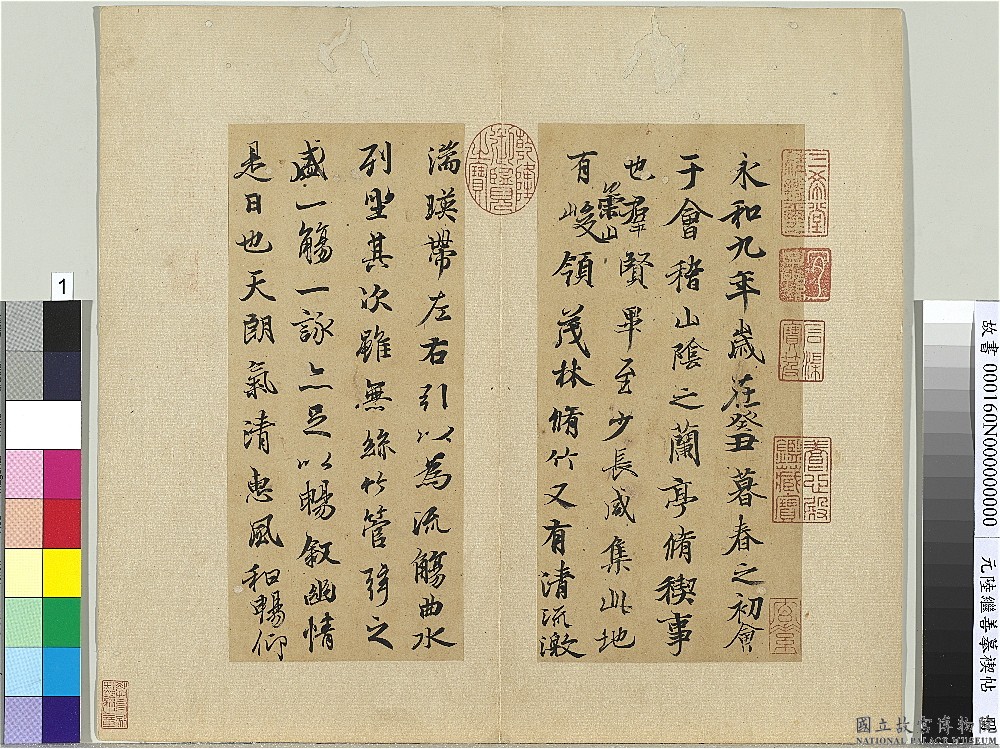 永和九年歲在癸丑暮春之初會
于會稽山陰之蘭亭脩稧事
也羣賢畢至少長咸集此地
有崇山峻領茂林脩竹又有清流激
湍暎帶左右引以為流觴曲水
列坐其次雖無絲竹管弦之
盛一觴一詠亦足以暢叙幽情
是日也天朗氣清惠風和暢仰
三希堂精鑑璽
宜子孫
石渠寶笈
養心殿鑑藏寶
乾隆御覽之寶
1
故書 000160N000000000
元陸繼善摹禊帖
國立故宮博物院
NATIONAL PALACE MUSEUM